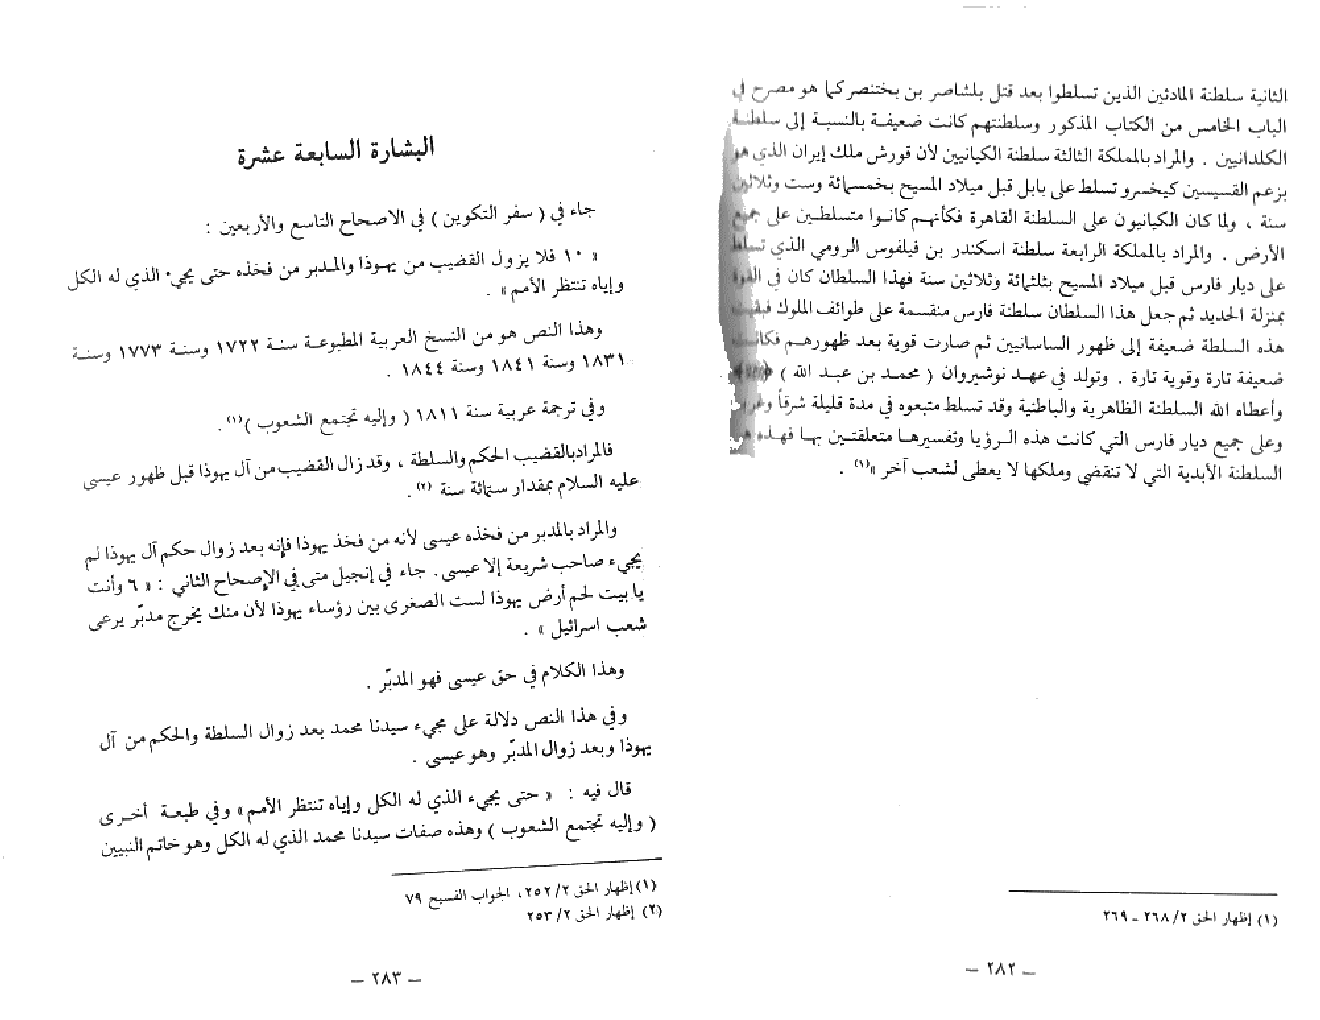 الثانية سلطنة المادئين الذين تسلطوا بعد قتل بلشاصر بن بختنصر كما هو مصرح في
الباب الخامس من الكتاب المذكور وسلطنتهم كانت ضعيفة بالنسبة إلى سلطنة
الكلدانيين . والمراد بالمملكة الثالثة سلطنة الكيانيين لأن قورش ملك إيران الذي هو
بزعم القسيسين كيخسرو تسلط على بابل قبل ميلاد المسيح بخمسمائة وست وثلاثين
سنة ، ولما كان الكيانيون على السلطنة القاهرة فكأنهم كانوا متسلطين على جميع
الأرض . والمراد بالمملكة الرابعة سلطنة اسكندر بن فيلفوس الرومي الذي تسلط
على ديار فارس قبل ميلاد المسيح بثلثمائة وثلاثين سنة فهذا السلطان كان في القوة
بمنزلة الحديد ثم جعل هذا السلطان سلطنة فارس منقسمة على طوائف الملوك فبقيت
هذه السلطة ضعيفة إلى ظهور الساسانيين ثم صارت قوية بعد ظهورهم فكانت
ضعيفة تارة وقوية تارة . وتولد في عهد نوشيروان ( محمد بن عبد الله )
وأعطاه الله السلطنة الظاهرية والباطنية وقد تسلط متبعوه في مدة قليلة شرقاً وغرباً
وعلى جميع ديار فارس التي كانت هذه الرؤيا وتفسيرها متعلقتين بها فهذه هي
السلطنة الأبدية التي لا تنقضي وملكها لا يعطى لشعب آخر »(١) .
(١) إظهار الحق ٢/ ٢٦٨ - ٢٦٩
— ٢٨٢ —
البشارة السابعة عشرة
جاء في ( سفر التكوين ) في الاصحاح التاسع والأربعين :
« ١٠ فلا يزول القضيب من يهوذا والمدبر من فخذه حتى يجيء الذي له الكل
وإياه تنتظر الأمم» .
وهذا النص هو من النسخ العربية المطبوعة سنة ١٧٢٢ وسنة ١٧٧٣ وسنة
١٨٣١ وسنة ١٨٤١ وسنة ١٨٤٤ .
وفي ترجمة عربية سنة ١٨١١ ( وإليه تجتمع الشعوب )(١) .
فالمراد بالقضيب الحكم والسلطة ، وقد زال القضيب من آل يهوذا قبل ظهور عيسى
عليه السلام بمقدار ستمائة سنة (٢) .
والمراد بالمدبر من فخذه عيسى لأنه من فخذ يهوذا فإنه بعد زوال حكم آل يهوذا لم
يجيء صاحب شريعة إلا عيسى . جاء في إنجيل متى في الإصحاح الثاني : « ٦ وأنت
يا بيت لحم أرض يهوذا لست الصغرى بين رؤساء يهوذا لأن منك يخرج مدبّر يرعى
شعب اسرائيل » .
وهذا الكلام في حق عيسى فهو المدبّر .
وفي هذا النص دلالة على مجيء سيدنا محمد بعد زوال السلطة والحكم من آل
يهوذا وبعد زوال المدبّر وهو عيسى .
قال فيه : « حتى يجيء الذي له الكل وإياه تنتظر الأمم» وفي طبعة أخرى
( وإليه تجتمع الشعوب ) وهذه صفات سيدنا محمد الذي له الكل وهو خاتم النبيين
(١) إظهار الحق ٢/ ٢٥٢ ، الجواب الفسيح ٧٩
(٢) إظهار الحق ٢/ ٢٥٣
— ٢٨٣ —